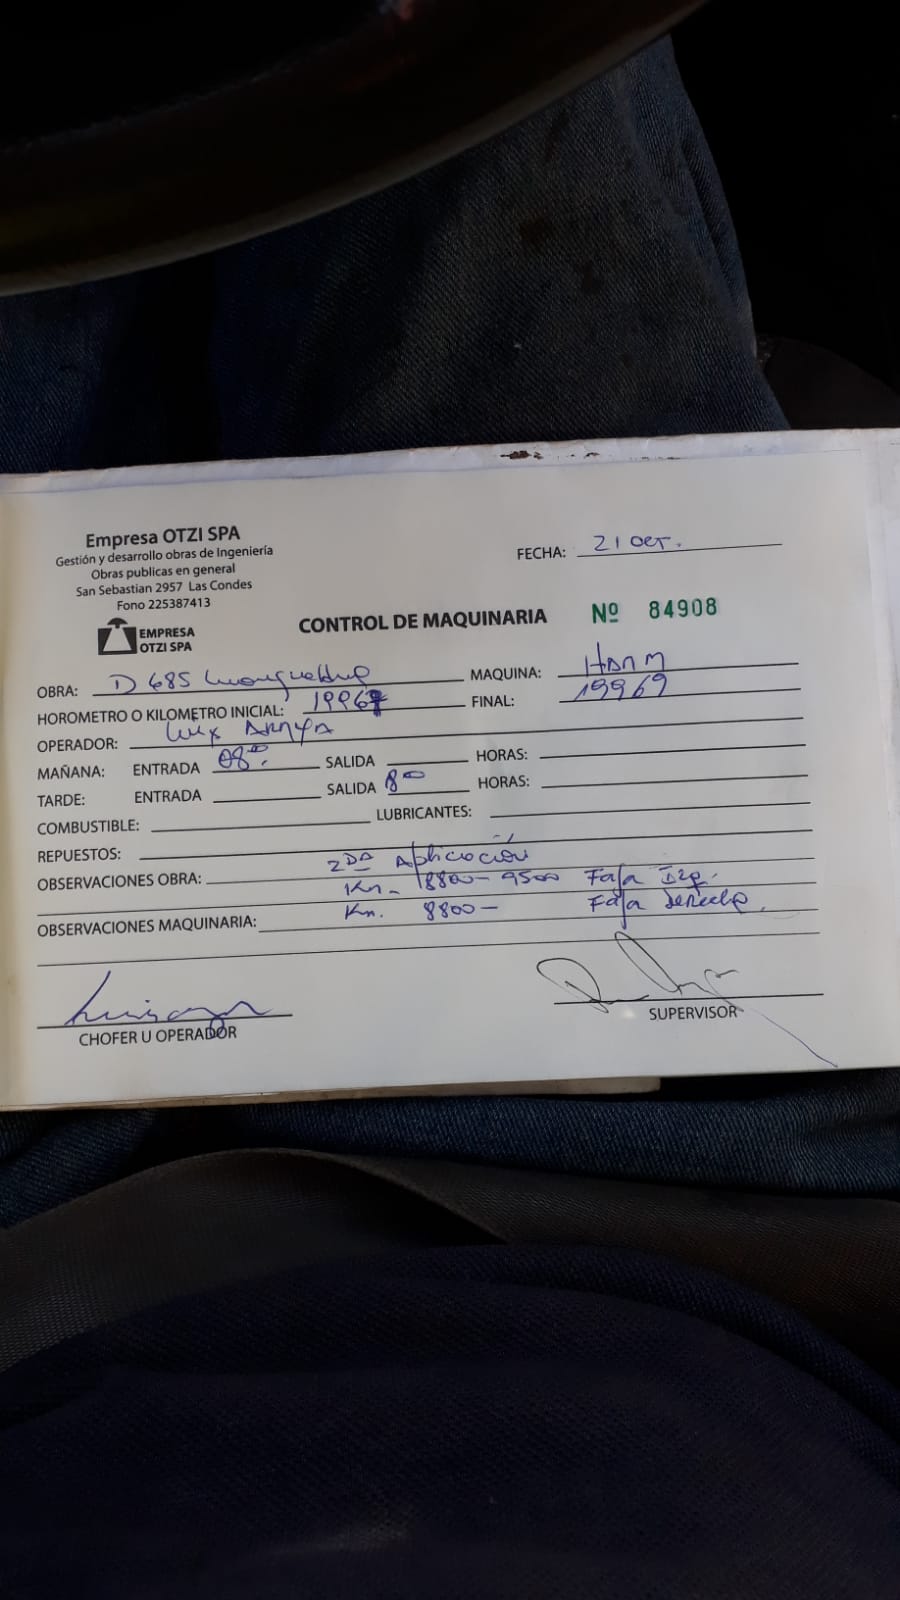 Empresa OTZI SPA
Gestión y desarrollo obras de Ingeniería
Obras publicas en general
San Sebastian 2957 Las Condes
Fono 225387413
EMPRESA
OTZI SPA
FECHA: 21 OCT.
CONTROL DE MAQUINARIA Nº 84908
OBRA: D 685 MAQUINA: HAMM
HOROMETRO O KILOMETRO INICIAL: 19967 FINAL: 19969
OPERADOR: Luis ARAYA
MAÑANA: ENTRADA 08:00 SALIDA HORAS:
TARDE: ENTRADA SALIDA 8:00 HORAS:
COMBUSTIBLE: LUBRICANTES:
REPUESTOS:
OBSERVACIONES OBRA: 2DA Aplicación
Km. 8800- 9500 Faja Izq.
OBSERVACIONES MAQUINARIA: Km. 8800- Faja derecha.
CHOFER U OPERADOR
SUPERVISOR